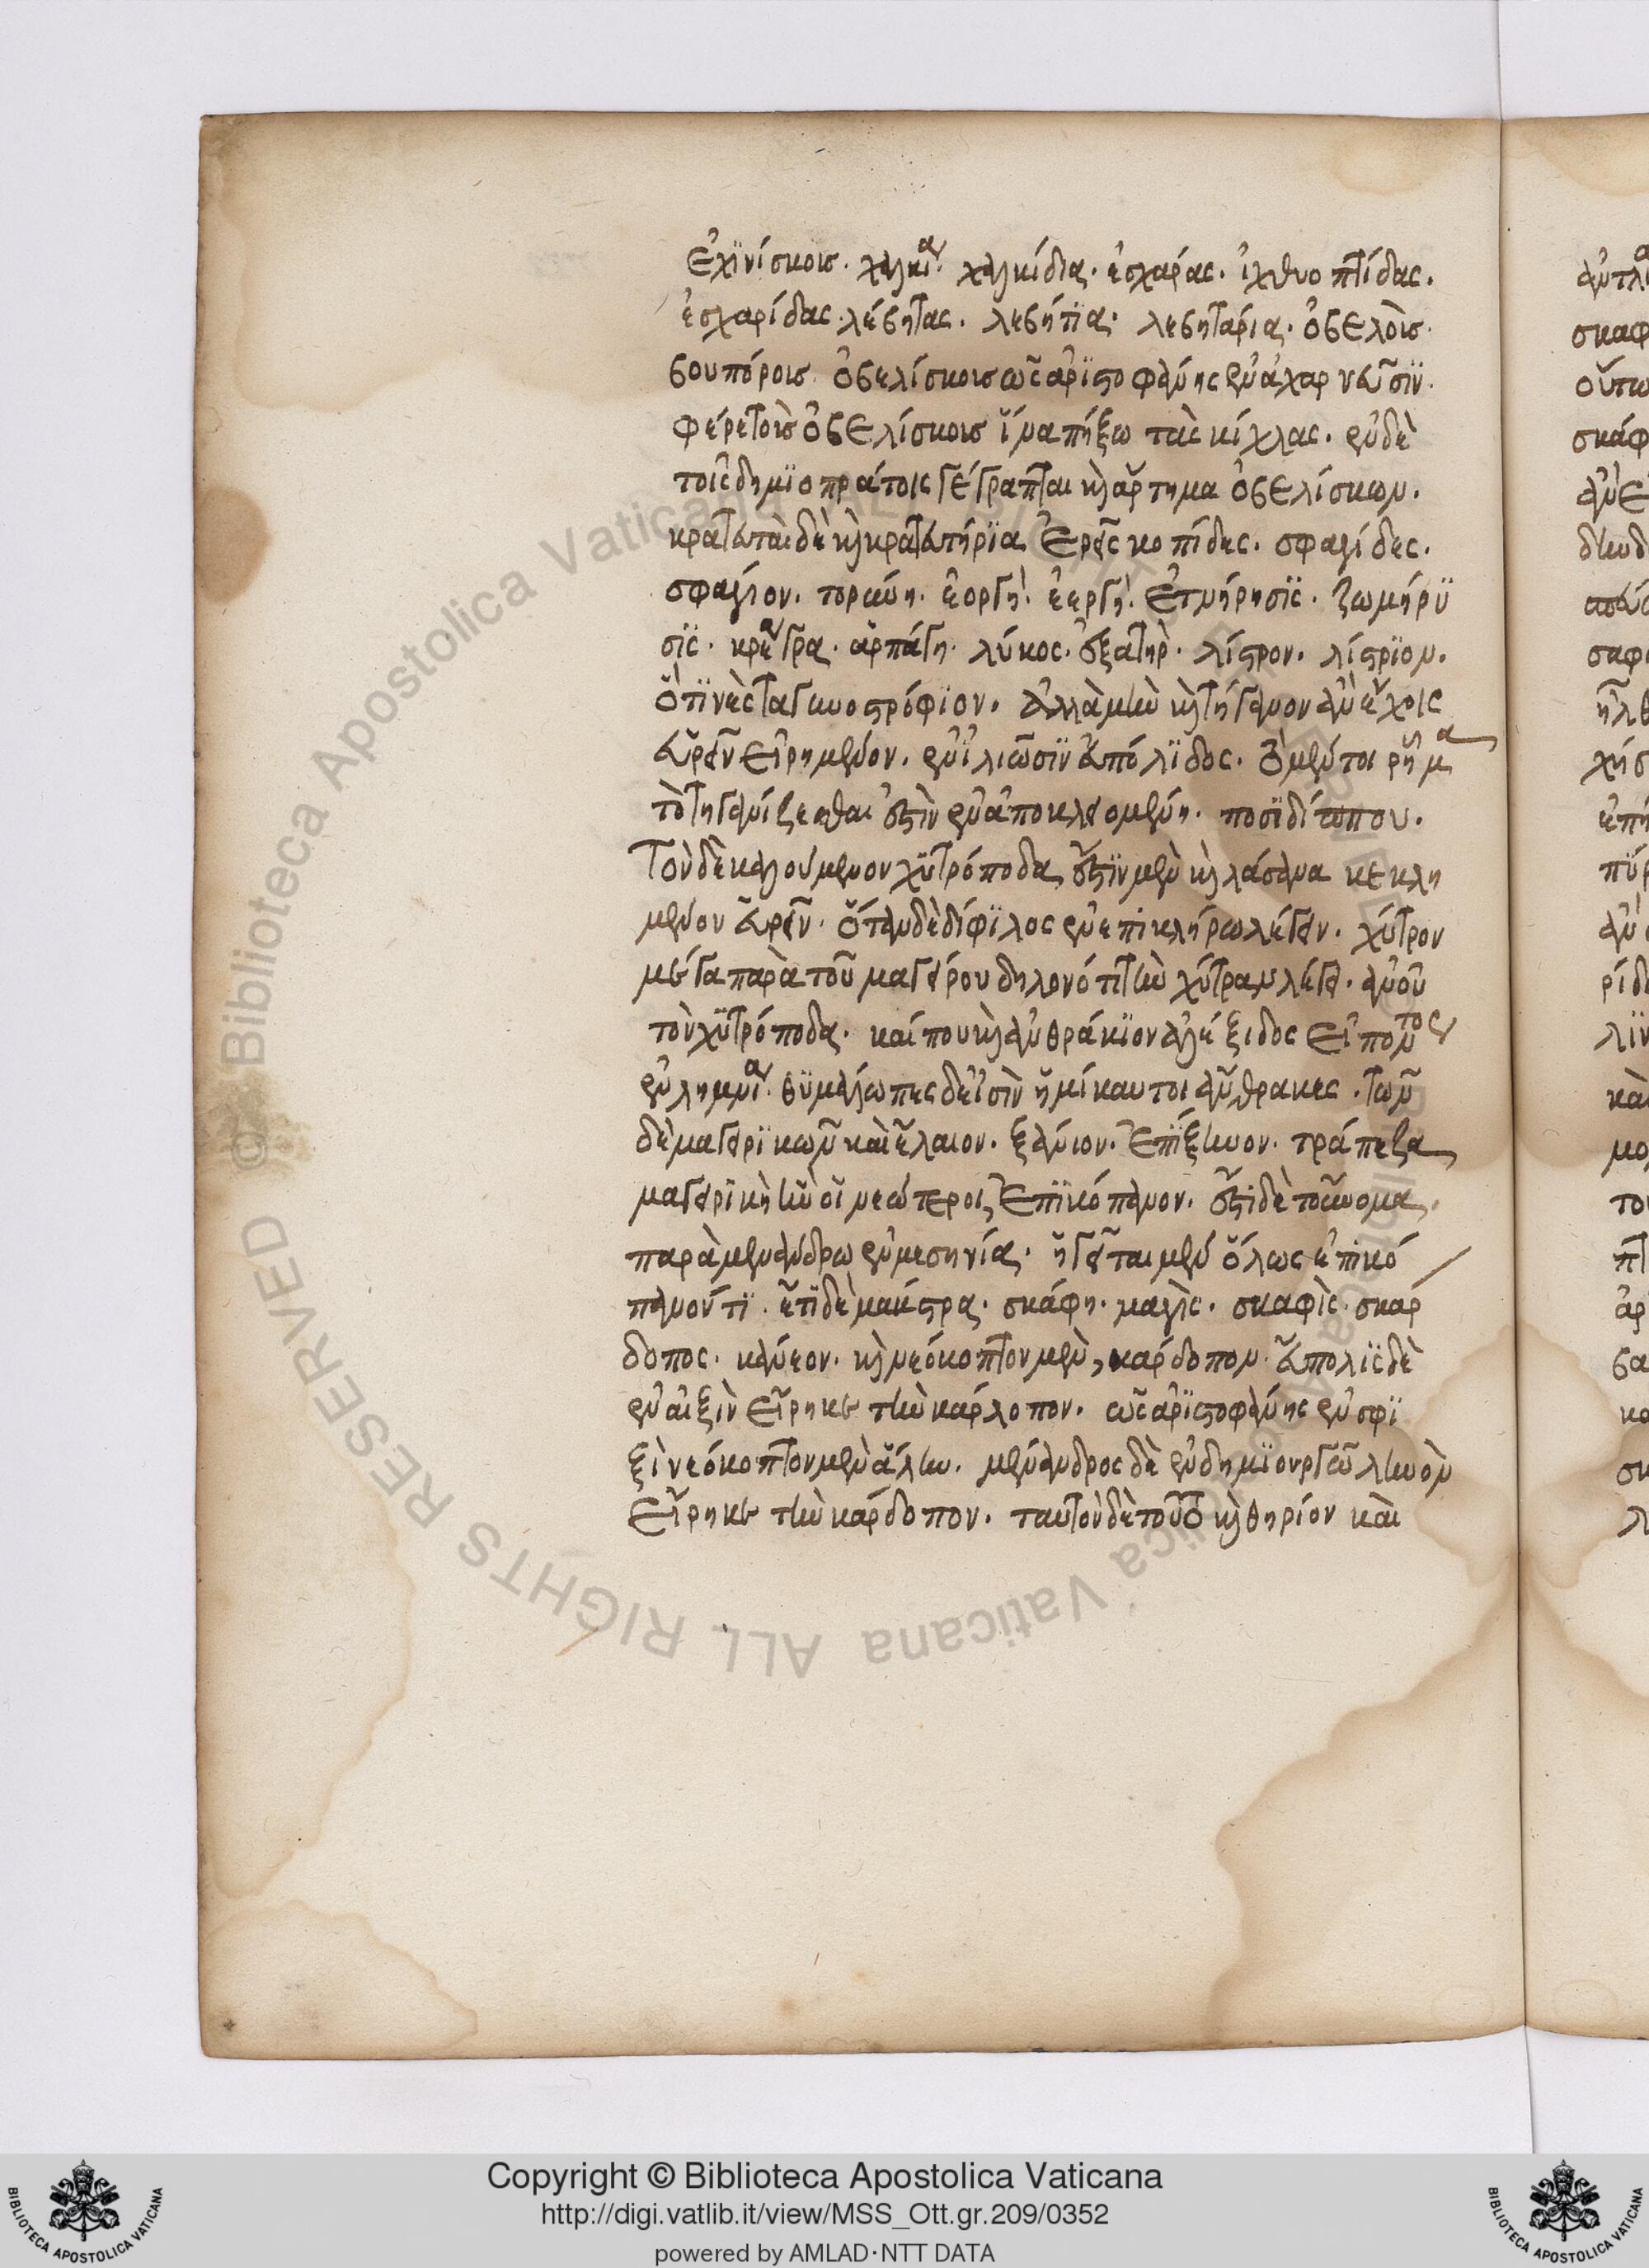 ἐχϊνίσκοισ. χαλκία. χαλκίδια. ἐσχάρας. ἰχθυοπτίδας.
ἐσχαρίδας. λέβητας. λεβήτια. λεβητάρια. ὀβελοὺσ.
βουπόρουσ. ὀβελίσκουσ ὡς ἀρϊστοφάνης ἐν ἀχαρνεῦσϊν.
φέρε τοὺσ ὀβελίσκουσ ἵνα πήξω τὰς κίχλας. ἐν δὲ
τοῖς δημϊοπράτοις γέγραπται καὶ ἄρτημα ὀβελίσκων.
κρατευταὶ δὲ καὶ κρατευτήρϊα ἐρεῖς κοπίδες. σφαγίδες.
σφαγίον. τορύνη. ἐοργὴ. ἐεργὴ. ἐτνήρησϊς. ζωμήρϋ
σϊς. κρεάγρα. ἁρπάγη. λύκος. ἐξατὴρ. λίστρον. λίστρϊον.
ὅτϊνὲς ταγηνοστρόφϊον. ἀλλὰ μὴν καὶ τήγανον ἂν ἔχοις
εὑρεῖν εἰρημένον. ἐν ἰλιῶσϊν εὐπόλϊδος. ὃ μέντοι ῥῆμα
τὸ τηγανίζεσθαι ἐστὶν ἐν ἀποκλειομένῃ. ποσϊδίππου.
Τὸν δὲ καλούμενον χϋτρόποδα, ἔστϊν μὲν καὶ λάσανα κεκλη
μένον εὑρεῖν. ὅταν δὲ δίφϊλος ἐν ἐπικλήρω λέγειν. χύτρον
μέγα παρὰ τοῦ μαγείρου δηλονότι τὴν χύτραν λέγει. ἀν οὖν
τὸν χϋτρόποδα. καί που καὶ ἀνθράκϊον ἀλέξιδος εἰπόντος
ἐν λημνία. θϋμάλωπες δ' εἰσὶν ἡμίκαυτοι ἄνθρακες. τῶν
δὲ μαγειρϊκῶν καὶ ἔλαιον. ξάνιον. ἐπίξηνον. τράπεζα
μαγειρϊκὴ ἣν οἱ νεώτεροι ἐπϊκόπανον. ἔστι δὲ τοὔνομα.
παρὰ μενάνδρω ἐν μεσηνία. ἡγεῖται μὲν ὅλως ἐπικό
πανόν τϊ. ἔτϊ δὲ μάκτρα. σκάφη. μαγὶς. σκαφὶς. σκαρ
δοπος. κάνεον. καὶ νεόκοπτον μὲν, κάρδοπον. εὔπολϊς δὲ
ἐν αἰξὶν εἴρηκε τὴν κάρλοπον. ὡς ἀρϊστοφάνης ἐν σφϊ
ξὶ νεόκοπτον μὲν ἄλην. μένανδρος δὲ ἐν δημϊουργῷ ληνὸν
εἴρηκε τὴν κάρδοπον. ταυτὸν δὲ τοῦτο καὶ θηρίον καὶ
Copyright © Biblioteca Apostolica Vaticana
http://digi.vatlib.it/view/MSS_Ott.gr.209/0352
powered by AMLAD·NTT DATA